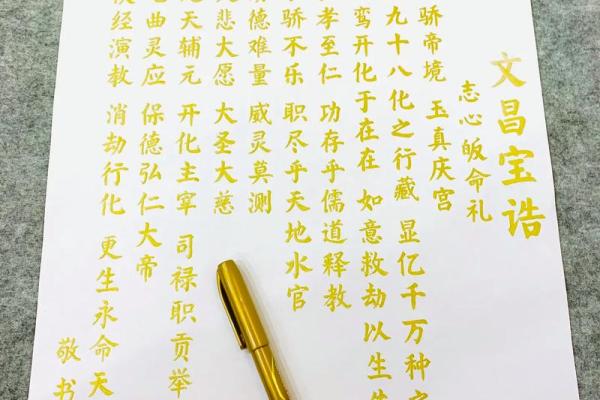 文昌宝诰
志心皈命礼
骄帝境 玉真庆宫
九十八化之行藏 显亿千万种
鸾开化于在在 如意救劫以生
孝至仁 功存乎儒道释教
骄不乐 职尽乎天地水官
德难量 威灵莫测
悲大愿 大圣大慈
天辅元 开化主宰 司禄职贡举
曲灵应 保德弘仁大帝
经演教 消劫行化 更生永命天
敬书